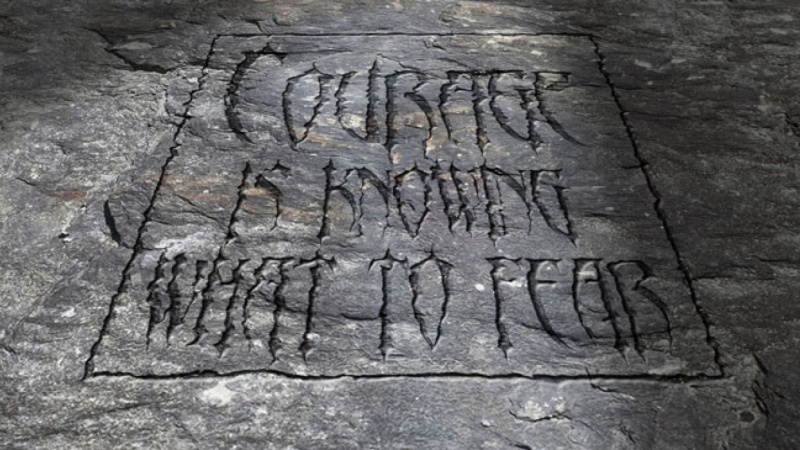 COURAGE
IS KNOWING
WHAT TO FEAR